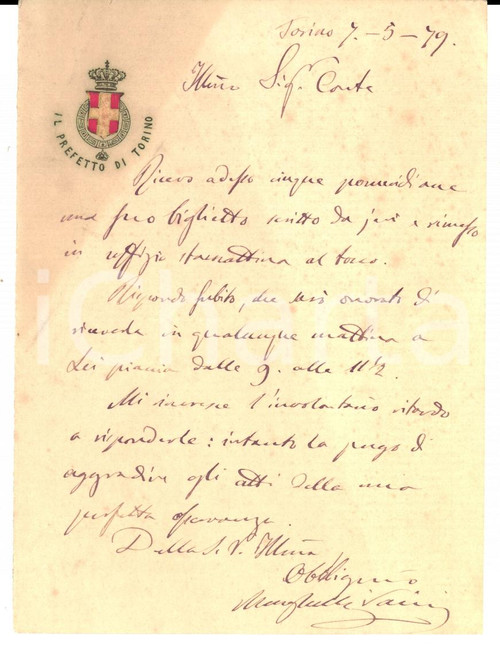 Torino 7-5-79.
Illmo Sig. Conte
IL PREFETTO DI TORINO
Ricevo adesso cinque pomeridiane
suo biglietto scritto da jeri e rimesso
in uffizio stamattina al tocco.
Rispondo subito, che mi onorerò di
riceverla in qualunque mattina a
Lei piaccia dalle 9. alle 11 1/2.
Mi incresce l'involontario ritardo
a risponderle: intanto la prego di
aggradire gli atti della mia
perfetta osservanza.
Della S. V. Illma
Obbligmo
iCharta